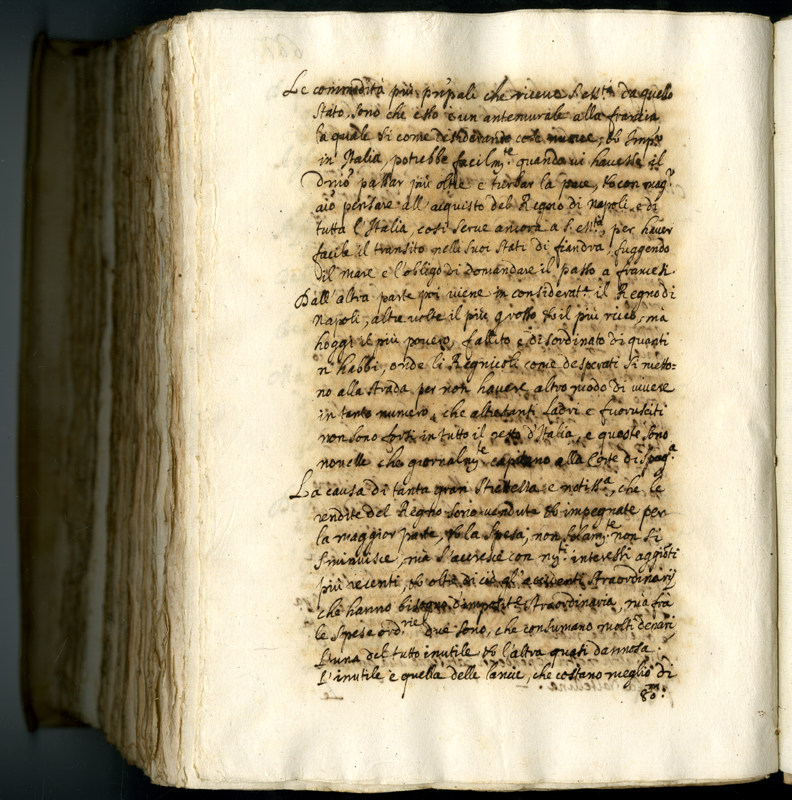 Le commodità più prĩpali che riceve S. M.tà da quello
stato, sono che esso è un antemurale alla francia,
la quale si come desiderando cose nuove, et
in Italia, potrebbe facilm.te quando vi havesse il
Dnĩo passar più oltre e turbar la pace, et con magr
aiõ pensare all'acquisto del Regno di Napoli, e di
tutta l'Italia, così serve ancora a S. M.tà, per haver
facile il transito nelli suoi stati di fiandra, fuggendo
il mare e l'obligo di domandare il passo a francesi.
Dall'altra parte poi viene in considerat.e il Regno di
Napoli, altre volte il più grosso et il più ricco, mà
hoggi il più povero, fallito e disordinato di quanti
n'habbi, onde li Regnicoli come desperati si metto=
no alla strada per non havere altro modo di vivere
in tanto numero, che altretanti ladri e fuorusciti
non sono forsi in tutto il resto d'Italia, e queste sono
novelle che giornalm.te capitano alla Corte di Spag.a
La causa di tanta gran strettezza e notiss.a, che le
rendite del Regno sono vendute et impegnate per
la maggior parte, et la spesa, non solam.te non si
sminuisce, mà s'accresce con interessi aggiõti
più recenti, et oltre di ciò gl'accidenti straordinarij
che hanno bisogno straordinaria, mà frà
le spese ord.rie due sono, che consumano molti denari
L'una del tutto inutile et l'altra quasi dannosa.
L'inutile è quella delle lancie, che costano meglio di
80m.